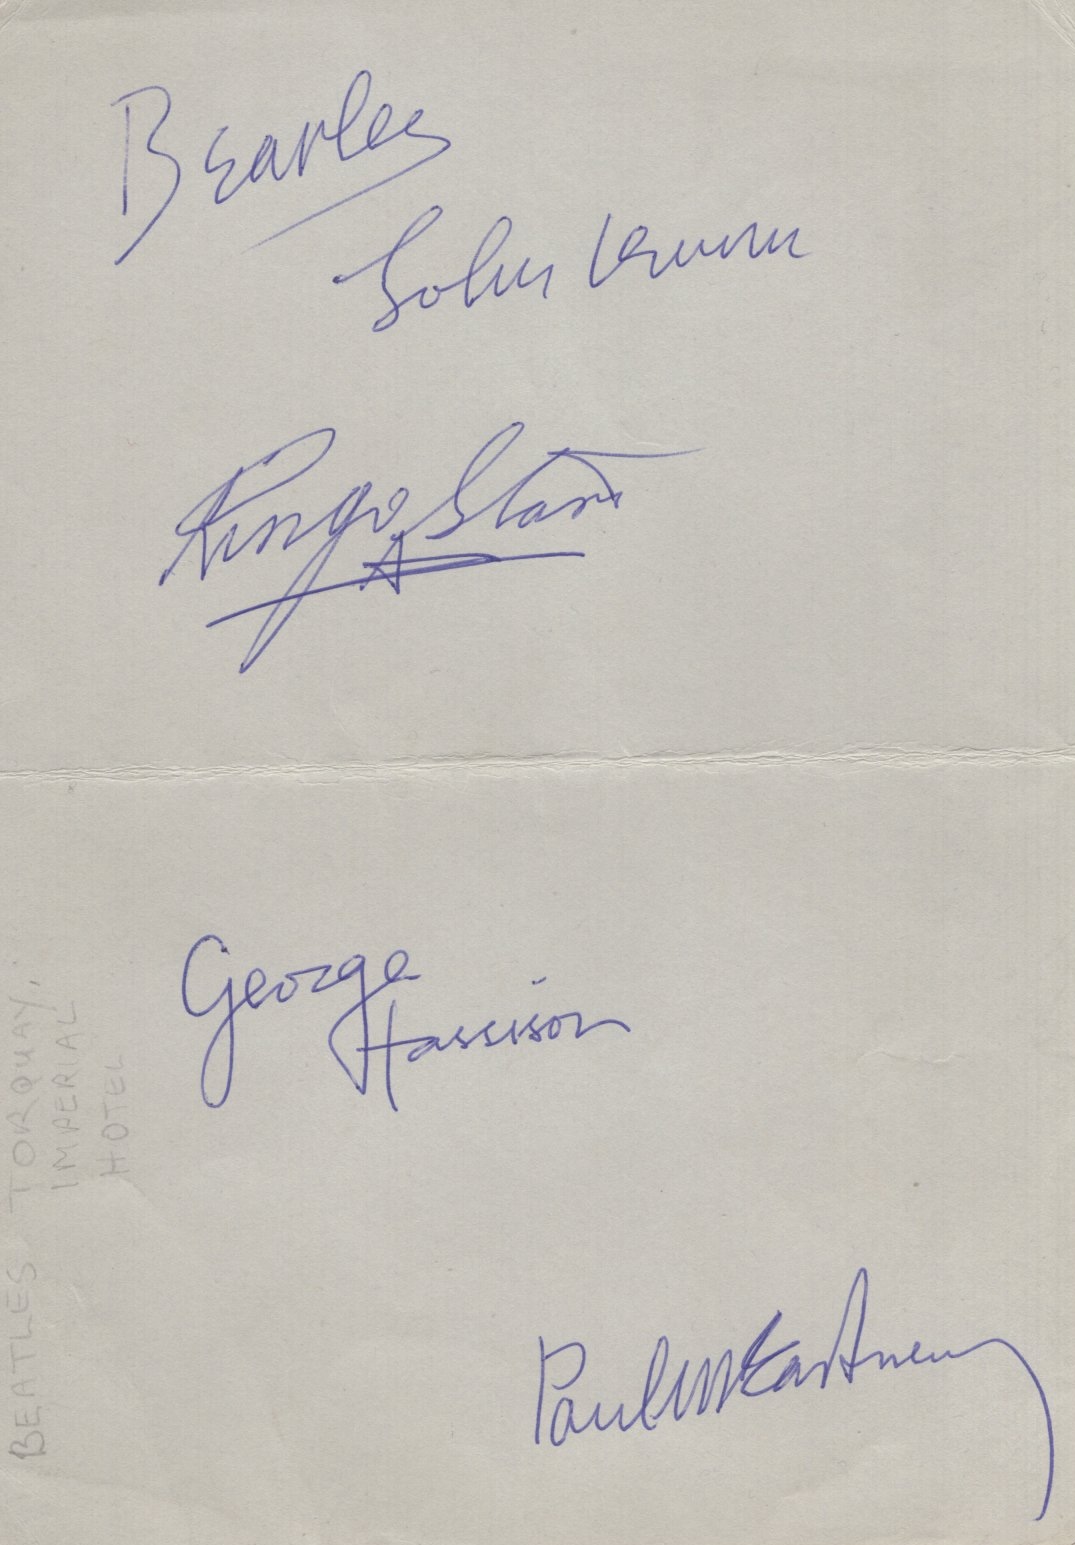 Beatles
John Lennon
Ringo Starr
George
Harrison
Paul McCartney
BEATLES TORQUAY.
IMPERIAL
HOTEL